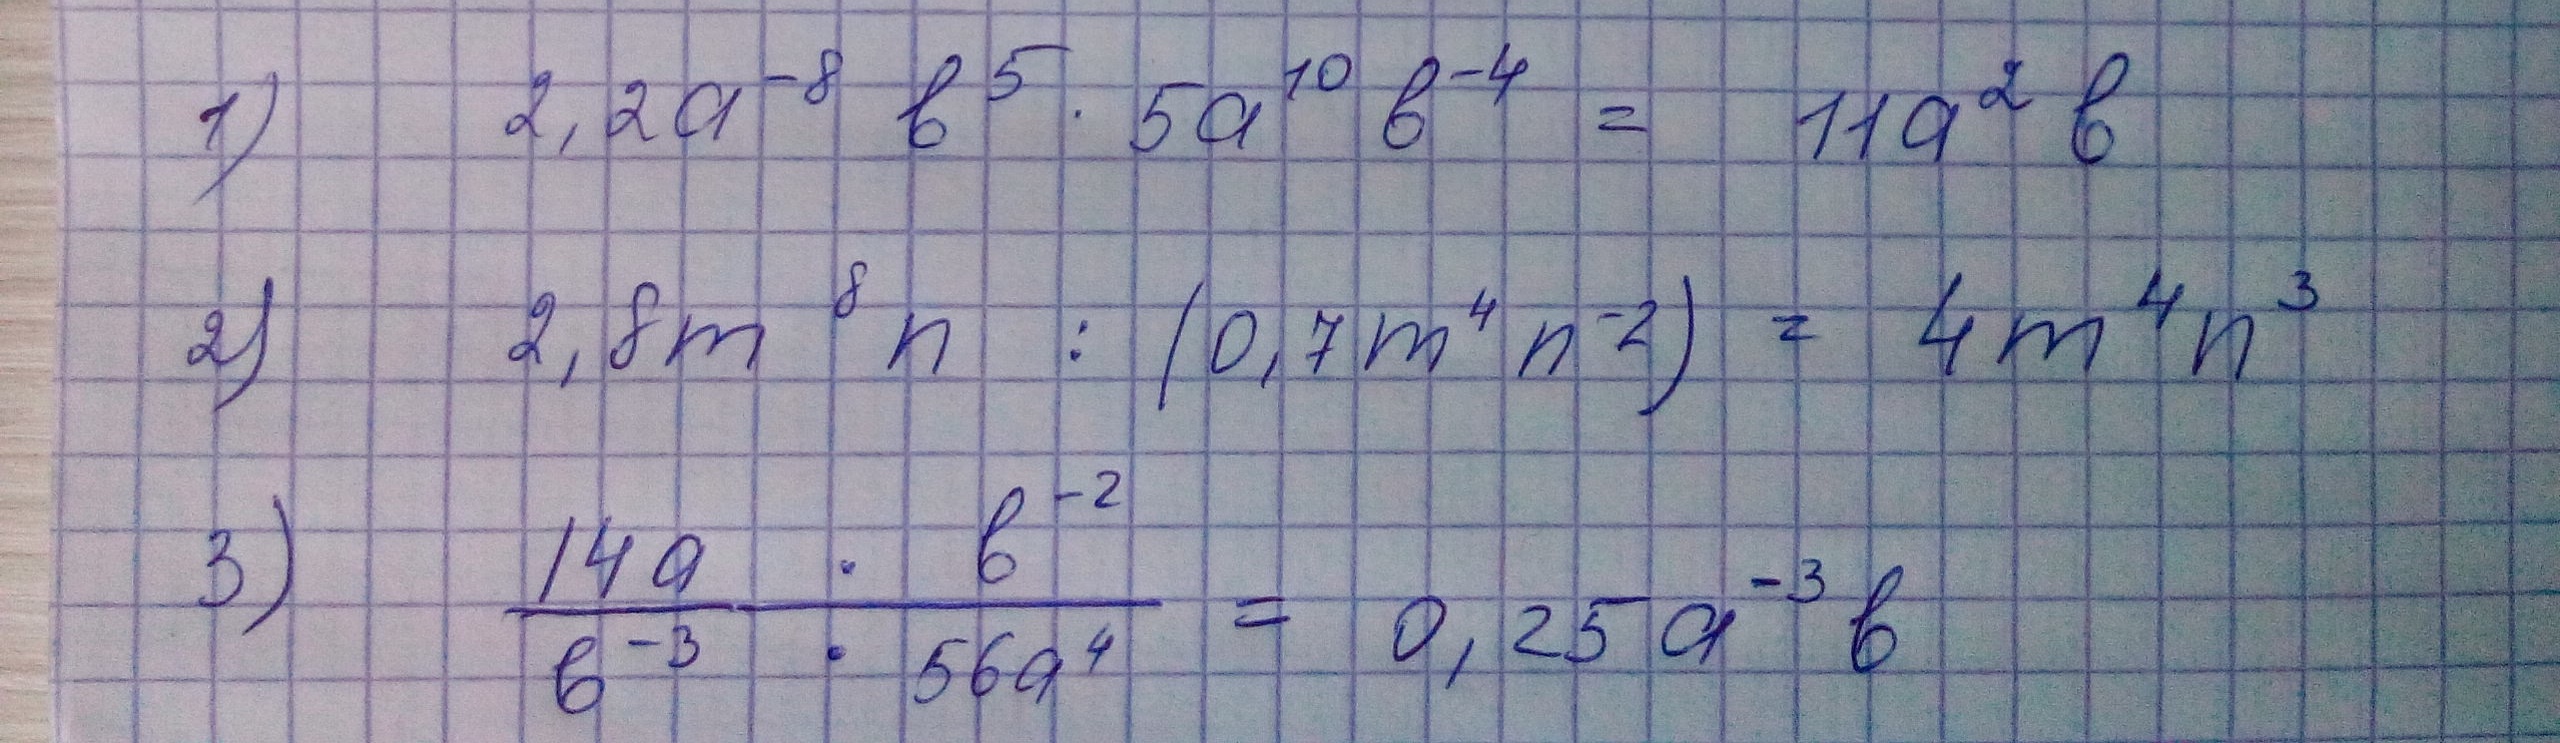 1) 2,2a⁻⁸ b⁵ · 5a¹⁰ b⁻⁴ = 11a² b
2) 2,8m⁸ n : (0,7m⁴ n⁻²) = 4m⁴ n³
3) 14a · b⁻² / b⁻³ · 56a⁴ = 0,25a⁻³ b